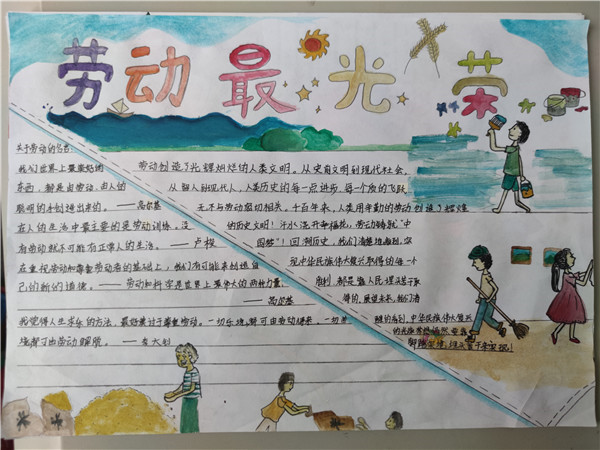 劳动最光荣
关于劳动的名言:
我们世界上最美好的
东西,都是由劳动、由人的
聪明的手创造出来的。——高尔基
在人的生活中最主要的是劳动训练。没
有劳动就不可能有正常人的生活。——卢梭
在重视劳动和尊重劳动者的基础上,我们有可能来创造自
己的新的道德。——劳动和科学是世界上最伟大的两种力量
——高尔基
我觉得人生求乐的方法,最好莫过于尊重劳动。一切乐境,都可由劳动得来,一切苦
境都可由劳动解脱。——李大钊
劳动创造了光辉灿烂的人类文明,从史前文明到现代社会,
从类人到现代人,人类历史的每一点进步,每一个质的飞跃
无不与劳动密切相关。千百年来,人类用辛勤的劳动创造了辉煌
的历史文明!汗水浇开幸福花,劳动铸就“中
国梦”!回溯历史,我们清楚地看到,实
现中华民族伟大复兴取得的每一个
胜利,都是靠人民
的,展望未来,我们清
的看到,中华民族伟大复兴